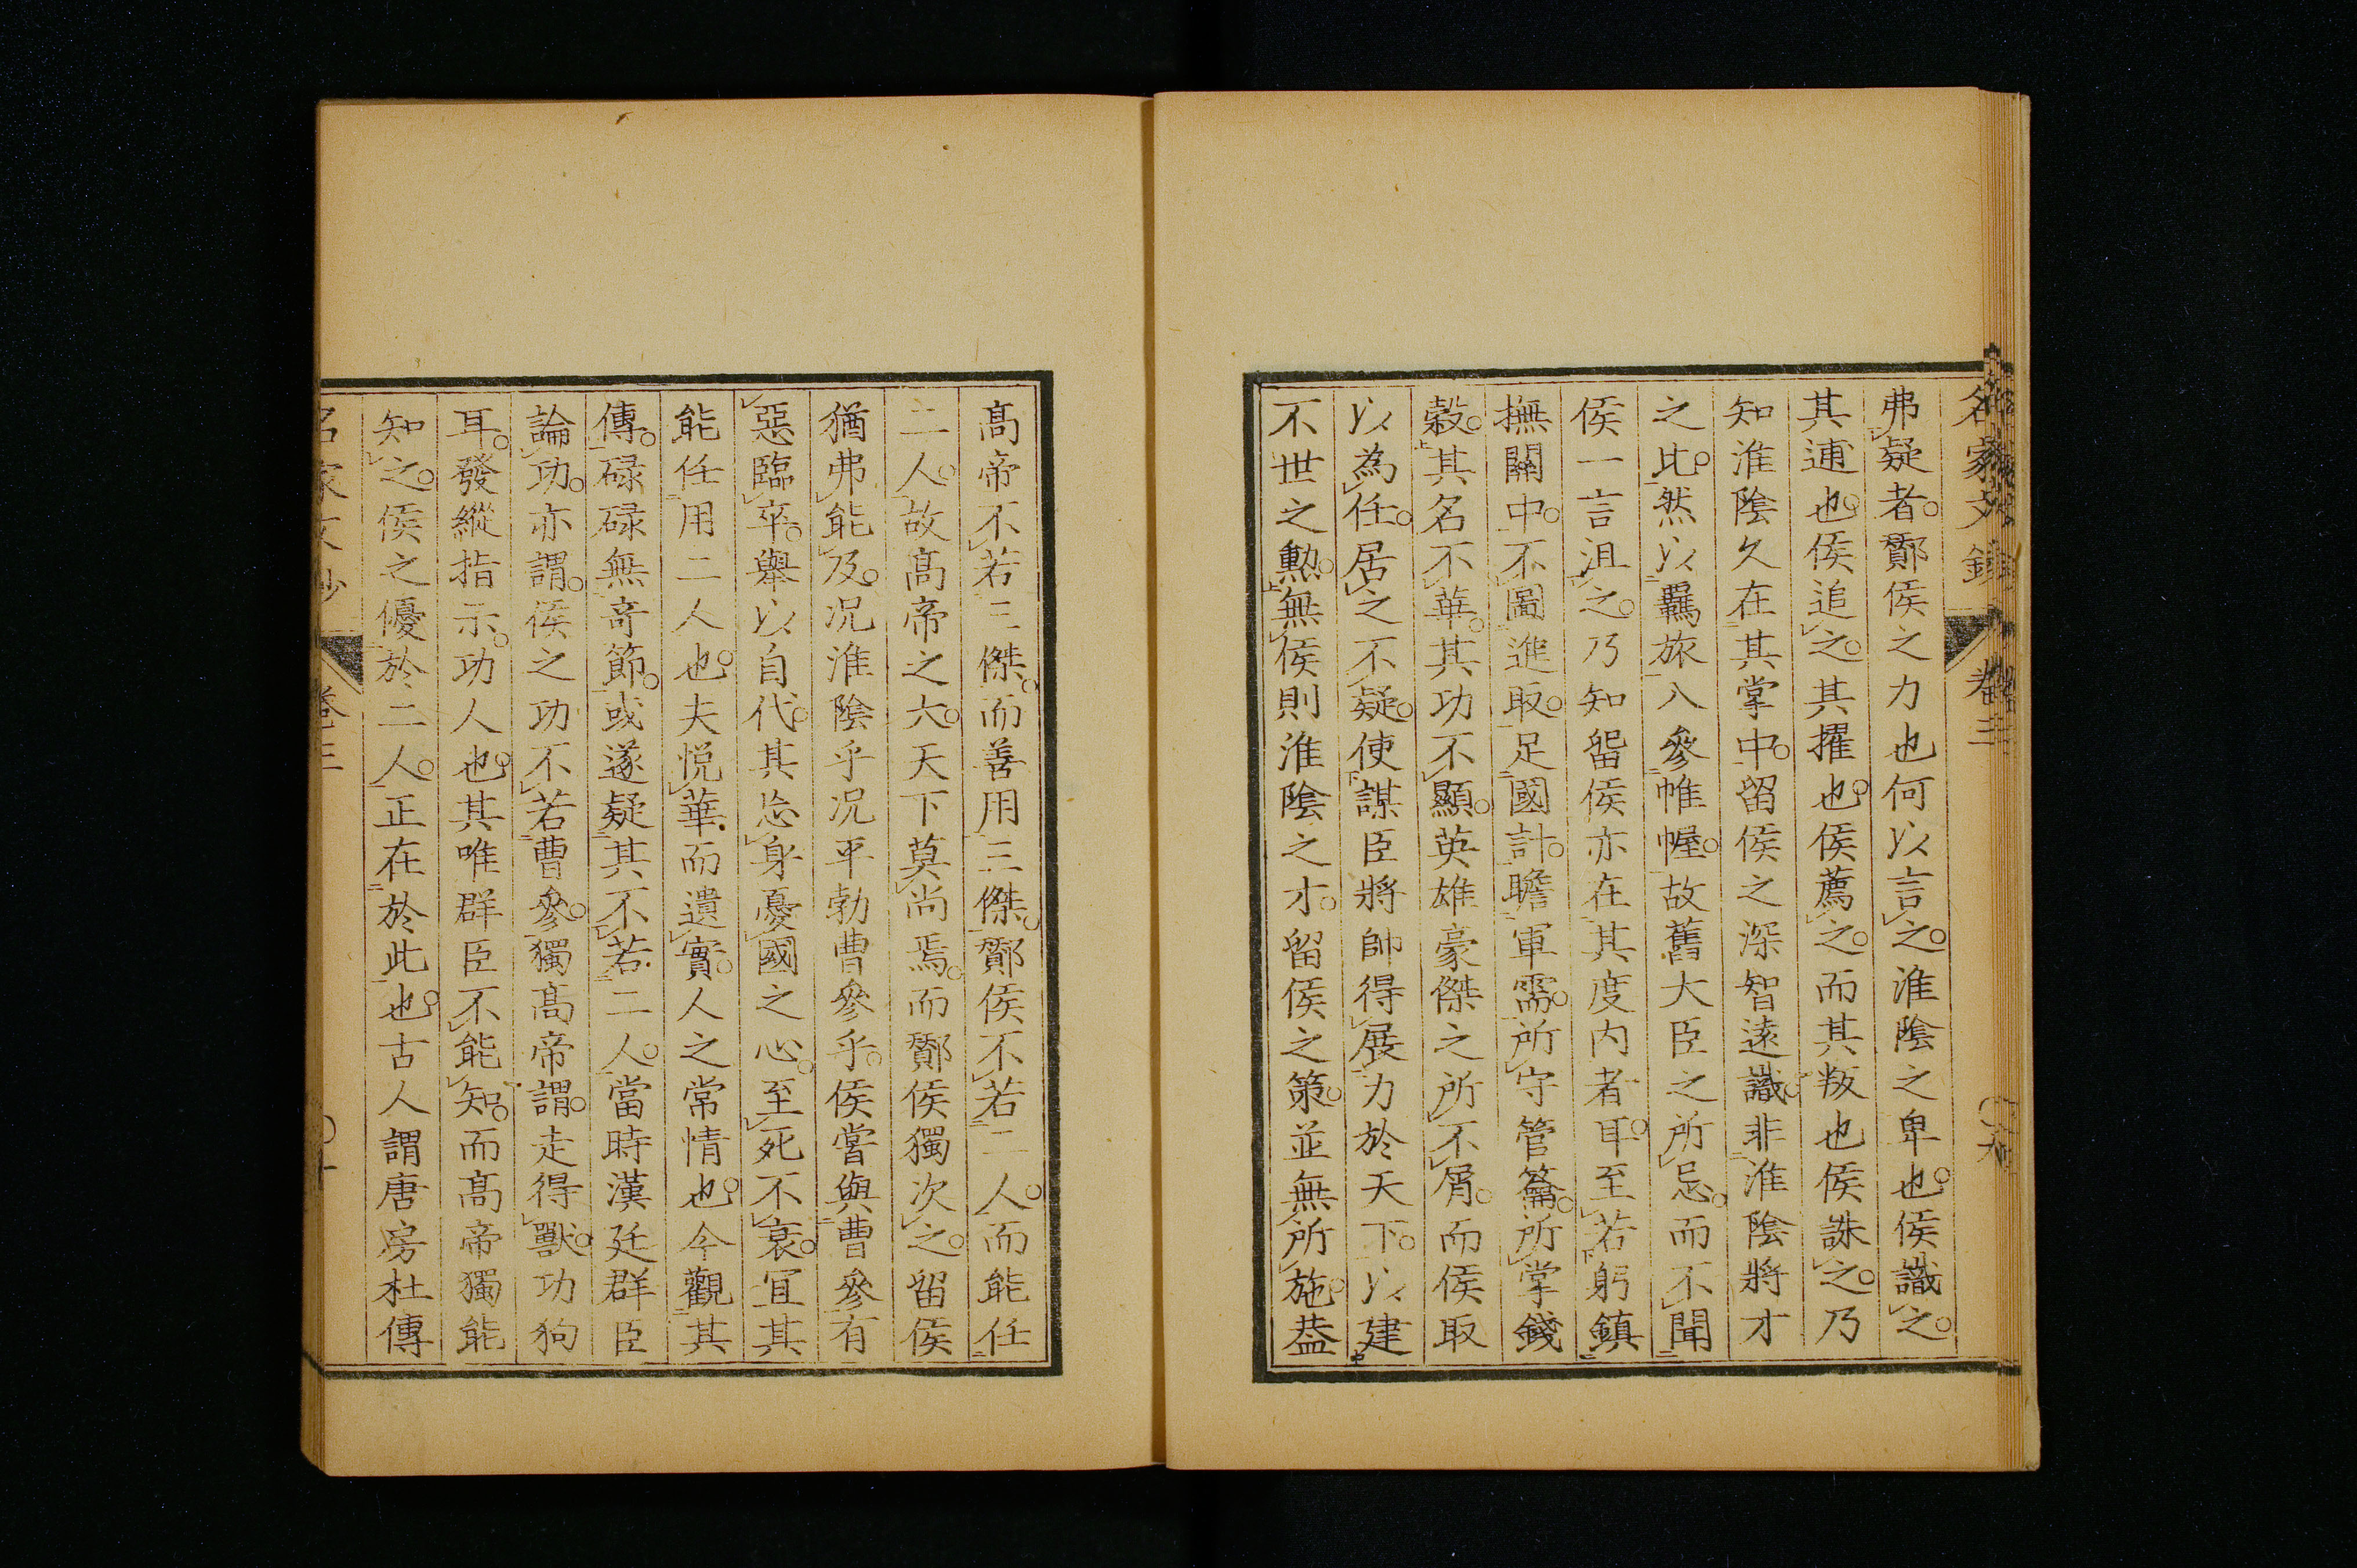 名家文鈔 卷三
弗疑者。酇侯之力也何以言之。淮陰之卑也。侯識之。
其逋也。侯追之。其擢也。侯薦之。而其叛也侯誅之。乃
知淮陰久在其掌中。留侯之深智遠識。非淮陰將才
之比。然以羈旅入參帷幄。故舊大臣之所忌。而不聞
侯一言沮之。乃知留侯亦在其度内者耳。至若躬鎮
撫關中。不圖進取。足國計。贍軍需。所守管籥。所掌錢
穀。其名不華。其功不顯。英雄豪傑之所不屑。而侯取
以為任。居之不疑。使謀臣將帥得展力於天下。以建
不世之勲。無侯則淮陰之才。留侯之策。並無所施。葢
高帝不若三傑。而善用三傑。酇侯不若二人。而能任
二人。故高帝之大。天下莫尚焉。而酇侯獨次之。留侯
猶弗能及。况淮陰乎况平勃曹參乎。侯嘗與曹參有
惡臨卒。舉以自代。其忘身憂國之心。至死不衰。宜其
能任用二人也。夫悦華而遺實。人之常情也。今觀其
傳。碌碌無奇節。或遂疑其不若二人。當時漢廷群臣
論功。亦謂。侯之功不若曹參。獨高帝謂。走得獸。功狗
耳。發縱指示。功人也。其唯群臣不能知。而高帝獨能
知之。侯之優於二人。正在於此也。古人謂唐房杜傳
名家文鈔 卷三